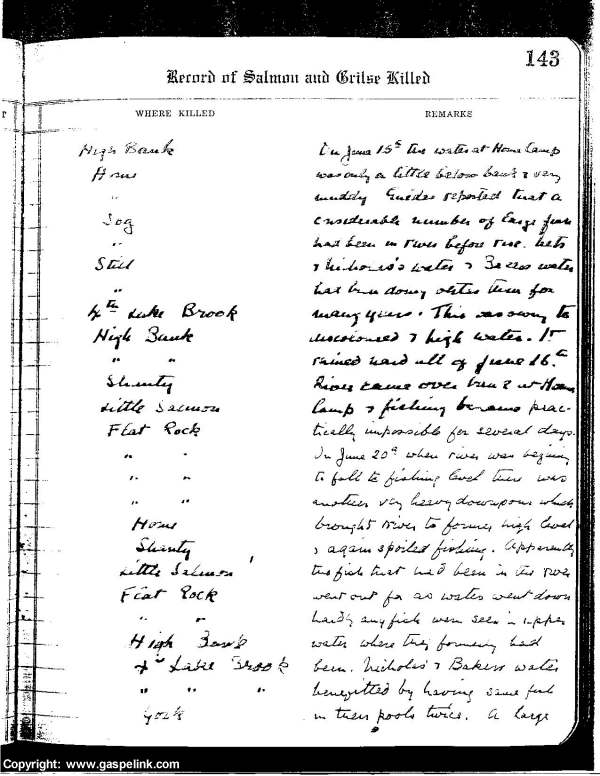 143
Record of Salmon and Grilse Killed
WHERE KILLED
REMARKS
High Bank
Home
"
Jog
"
Still
"
4th Lake Brook
High Bank
" "
Shanty
Little Salmon
Flat Rock
" "
" "
" "
Home
Shanty
Little Salmon
Flat Rock
" "
High Bank
4th Lake Brook
" " "
On June 15th the water at Home Camp
was only a little below bank & very
muddy Guides reported that a
considerable number of large fish
had been in river before rise.
& Nicholas's water & water
had been doing than for
many years. This was owing to
discolored & high water. It
rained hard all of June 16th.
River came over bank at Home
Camp & fishing became prac-
tically impossible for several days.
On June 20th when river was begining
to fall to fishing level there was
another very heavy downpour which
brought river to former high level
& again spoiled fishing. Apparently
the fish that had been in the river
went out for as water went down
hardly any fish were seen in upper
water where they formerly had
been. Nicholas & Bakers water
benefitted by having same fish
in their pools twice. A large
Copyright: www.gaspelink.com